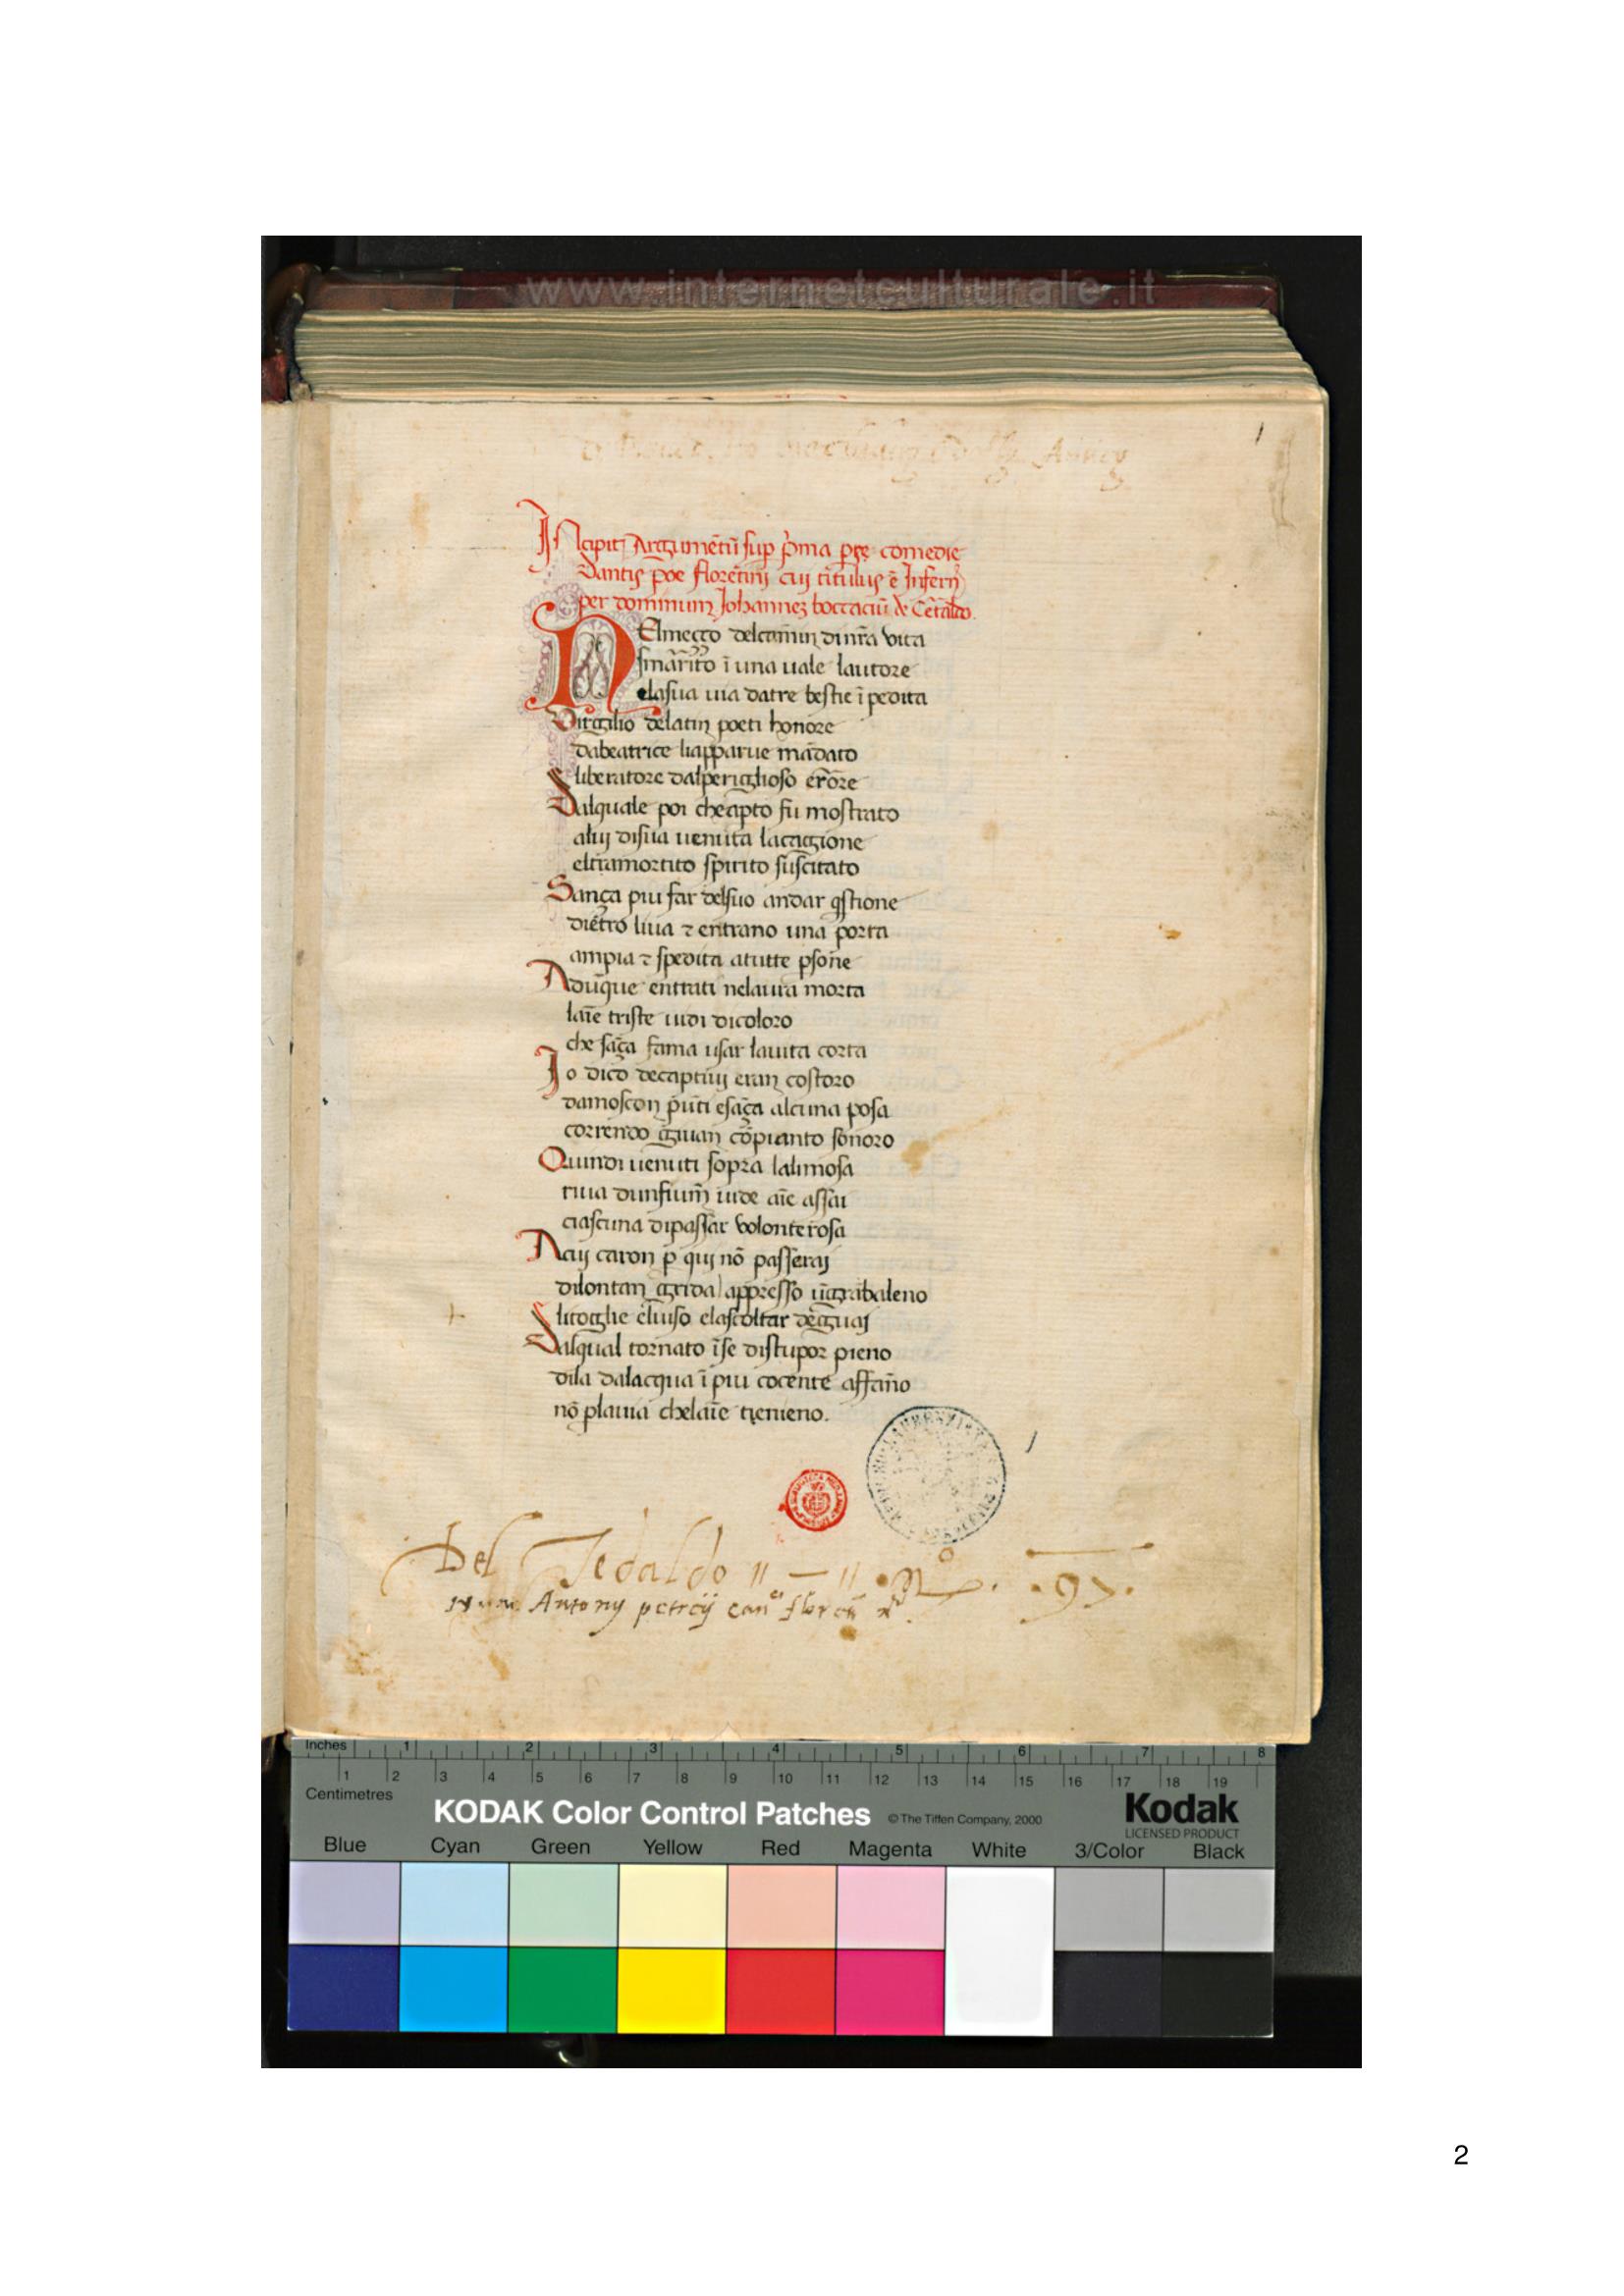 www.internetculturale.it
1
INcipit Argumētū sup p̄ma pte comedie
Dantis poe florētinj cuj titulus ē Infern
per dominum Johannez boccaciū de Cetaldo.
NElmeçço delcamin di nr̄a vita
smarito ī una uale lautore
elasua uia datre bestie īpedita
Virgilio delatin poeti honore
dabeatrice liapparue mādato
liberatore dalperiglioso erōre
Dalquale poi cheapto fu mostrato
aluj disua uenuta lacaggione
eltramortito spirito suscitato
Sança piu far delsuo andar qstione
dietro liua ⁊ entrano una porta
ampia ⁊ spedita atutte psone
Adūque entrati nelaura morta
laīe triste uidi dicoloro
che sāça fama usar lauita corta
Io dico decaptiuj eran costoro
damoscon pūti esāça alcuna posa
correndo giuan cōpianto sonoro
Quindi uenuti sopra lalimosa
riua dunfium̄ uide aīe assai
ciascuna dipassar volonterosa
Acuj caron p̄ quj nō passeraj
dilontan grida appresso ūgrābaleno
litoglie eluiso elascoltar deguaj
Dalqual tornato īse distupor pieno
dila dalacqua ī piu cocente affāno
nō plauia chelaīe tienieno.
1
Del Tedaldo 11 — 11 N.º .97.
Antonij petreij can.ci floren
Inches 1 2 3 4 5 6 7 8
1 2 3 4 5 6 7 8 9 10 11 12 13 14 15 16 17 18 19
Centimetres
KODAK Color Control Patches © The Tiffen Company, 2000 Kodak
LICENSED PRODUCT
Blue Cyan Green Yellow Red Magenta White 3/Color Black
2